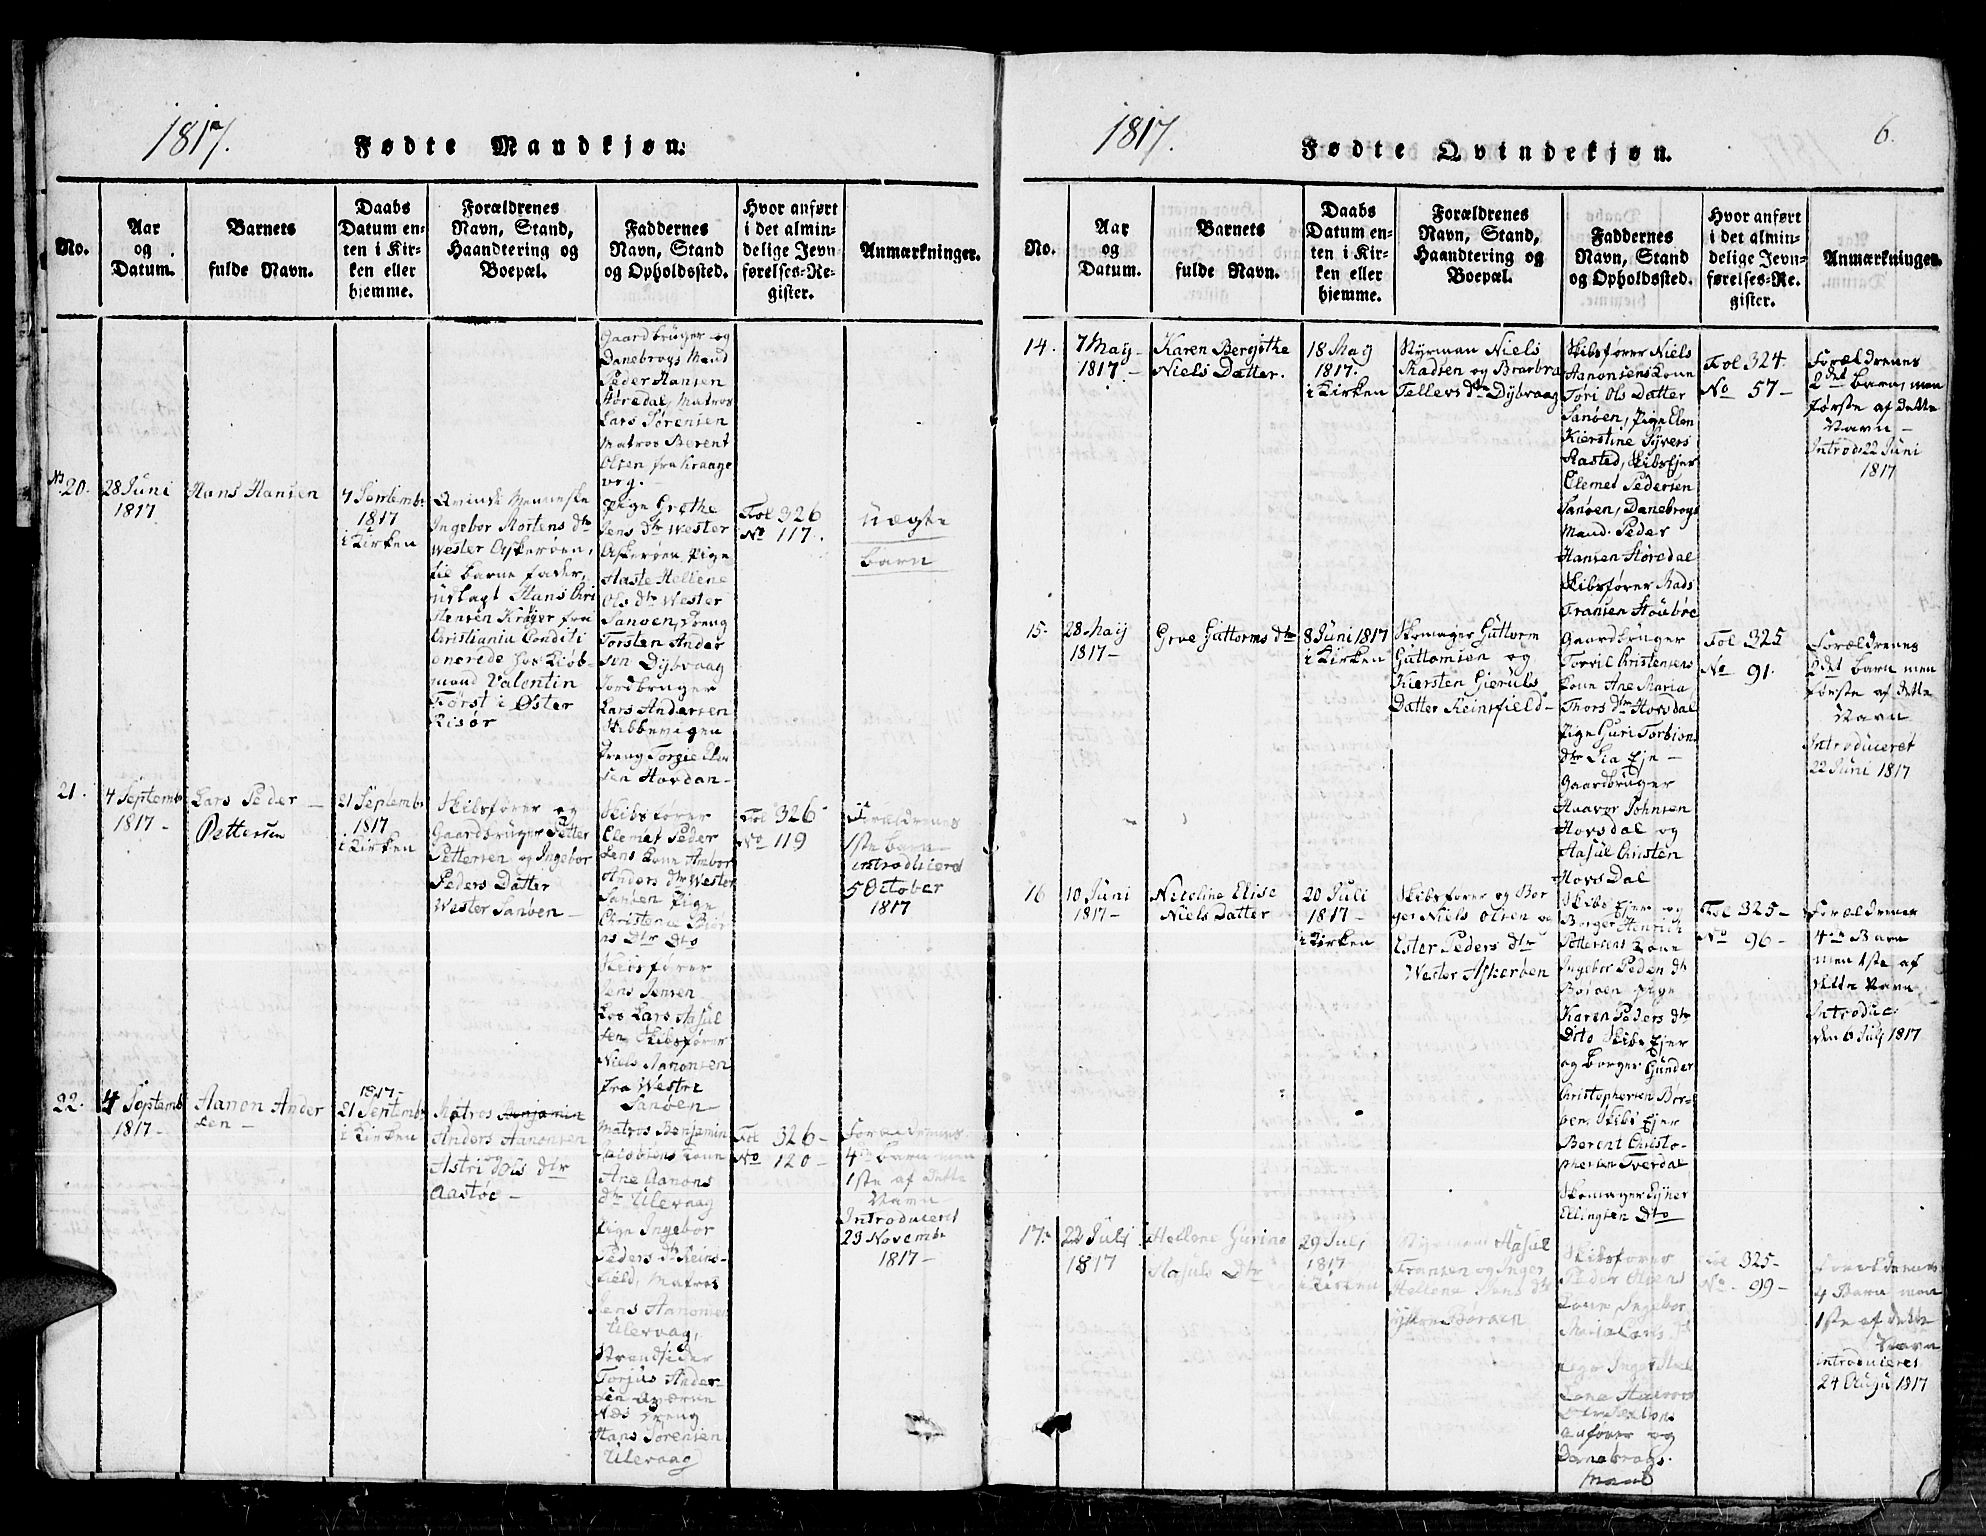 1817.
Fødte Mandkjøn.
No.
Aar
og
Datum.
Barnets
fulde Navn.
Daabs
Datum en-
ten i Kir-
ken eller
hjemme.
Forældrenes
Navn, Stand,
Haandtering og
Boepæl.
Faddernes
Navn, Stand
og Opholdssted.
Hvor anført
i det almin-
delige Jevn-
førelses-Re-
gister.
Anmærkninger.
Gaardbruger og
Danebrogs Mand
Peder Hansen
Høredal, Matros
Lars Sørensen
Matros Berent
Olsen fra Krange
vog.
No 20.
28 Juni
1817
Hans Hansen
7 Septembr
1817
i Kirken
Qvinde Menneske
Ingebor Mortens dtr
Wester Askerøen,
til barne fader,
udlagt Hans Chri
stensen Krøger fra
Christiania Conditi
onerede hos Kiøb-
mand Valentin
Først i Øster
Risør
Pige Grethe
Jens dtr Wester
Askerøen Pige
Aaste Hellene
Ols dtr Wester
Sanøen, Dreng
Torsten Ander
sen Dybvaag
Jordbruger
Lars Andersen
Kibbevigen
Dreng Torgie Elen
sen Hovdan-
Fol 326
No 117.
Uægte
barn
21.
4 Septemb
1817-
Lars Peder-
Pettersen
21 Septembr
1817
i Kirken
Skibsfører og
Gaardbruger Petter
Pettersen og Ingebor
Peders Datter
Wester Sanøen-
Skibsfører
Elemet Peder
sens Kone Ambor
Anders dtr Wester
Sanøen Pige
Christence Biør
ns Dtr Dto
Skibsfører
Jens Jensen
Los Lars Aasul
sen, Skibsfører
Niels Aanonsen
fra Westre
Sanøen-
Fol 326-
No 119
Forældrenes
1ste barn-
introduceret
5 October
1817
22.
4 Septemb
1817-
Aanon Ander
sen-
1817-
21 Septembr
i Kirken
Matros Benjamin
Anders Aanonsen
og
Astri Ols dtr
Aastøe-
Matros Benjamin
Jacobsens Kone
Ane Aanons
dtr Ulevaag
Pige Ingebor
Peders dtr Reins-
field, Matros
Jens Aanonsen
Ulevaag,
Strandsider
Torjus Ander-
sen Qværne
Næs Dreng
Hans Sørensen
Ulevaag
Fol 326-
No 120-
Forældrenes
4de barn men
1ste af Dette
Navn-
Introduceret
23 Novembr
1817-
1817.
Fødte Qvindekjøn.
6.
No.
Aar
og
Datum.
Barnets
fulde Navn.
Daabs
Datum en-
ten i Kir-
ken eller
hjemme.
Forældrenes
Navn, Stand,
Haandtering og
Boepæl.
Faddernes
Navn, Stand
og Opholdssted.
Hvor anført
i det almin-
delige Jevn-
førelses-Re-
gister.
Anmærkninger.
14.
7 May-
1817-
Karen Bergithe
Niels Datter.
18 May
1817.
i Kirken
Styrman Niels
Madsen og Brarbra
Tellevs dtr Dybvaag
Skibsfører Niels
Aanonsens Kone
Tori Ols Datter
Sanøen, Pige Elen
Kierstine Syvers
Rasted, Skibs Ejer
Elemet Pedersen
Sanøen, Danebrogs
Mand Peder
Hansen Høredal
Skibsfører Mads
Fransen Houbøe
Fol 324
No 57-
Forældrenes
2det barn, men
første af dette
Navn-
Introd: 22 Juni
1817
15.
28 May
1817-
Groe Guttorms dtr
8 Juni 1817
i Kirken
Skomager Guttorm
Guttomsen og
Kiersten Gieruls
Datter Reinsfield-
Gaardbruger
Torvil Christensens
Kone Ane Maria
Thors dtr Hovsdal
Pige Guri Torbions
dtr Lia Eje-
Gaardbruger
Haavor Johnsen
Hovsdal og
Aasul Christen
Hovsdal
Fol 325
No 91.
Forældrenes
2det barn men
første af dette
Navn
Introduceret
22 Juni 1817
16
10 Juni
1817-
Nicoline Elise
Niels Datter
20 Juli
1817-
i Kirken
Skibsfører og Bor
ger Niels Olsen og
Ester Peders dtr
Wester Askerøen
Skibs Ejer og
Borger Henrich
Pettersens Kone
Ingebor Peders dtr
Borøen Pige
Karen Peders dtr
Dito Skibs Ejer
og borger Gunder
Christophersen Bor-
øen, Skibs Ejer
Berent Christo-
phersen Tverdal
Skomager Ejner
Ellingsen Dto
Fol 325-
No 96-
Forældrenes
4de Barn
men 1ste af
dette Navn
Introduc:
den 6 July 1817
17.
22 Juli
1817
Hellene Gurine
Aasuls Dtr
29 Juli
1817
i Kirken
Styrman Aasul
Fransen og Inger
Hellene Jens dtr
Borøen
Skibsfører
Peder Olsens
Kone Ingebor
Maria Lars dtr
Lena Halvors
anfører og
Danebrogs
Mand
Fol 325-
No 99-
Forældrenes
4 Barn men
1ste af dette
Navn
introduceret
24 Augu 1817